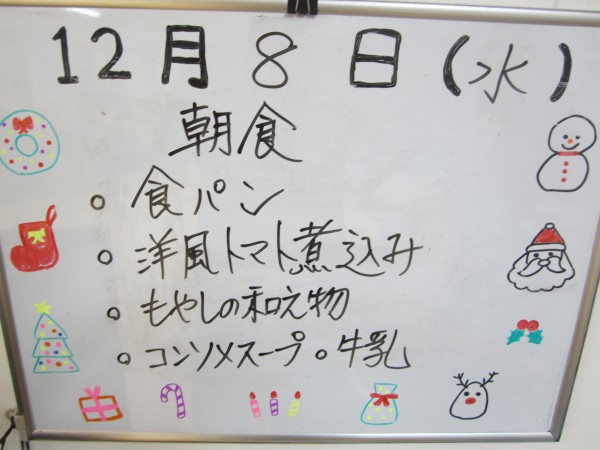 12月8日(水)
朝食
。食パン
。洋風トマト煮込み
。もやしの和え物
。コンソメスープ。牛乳